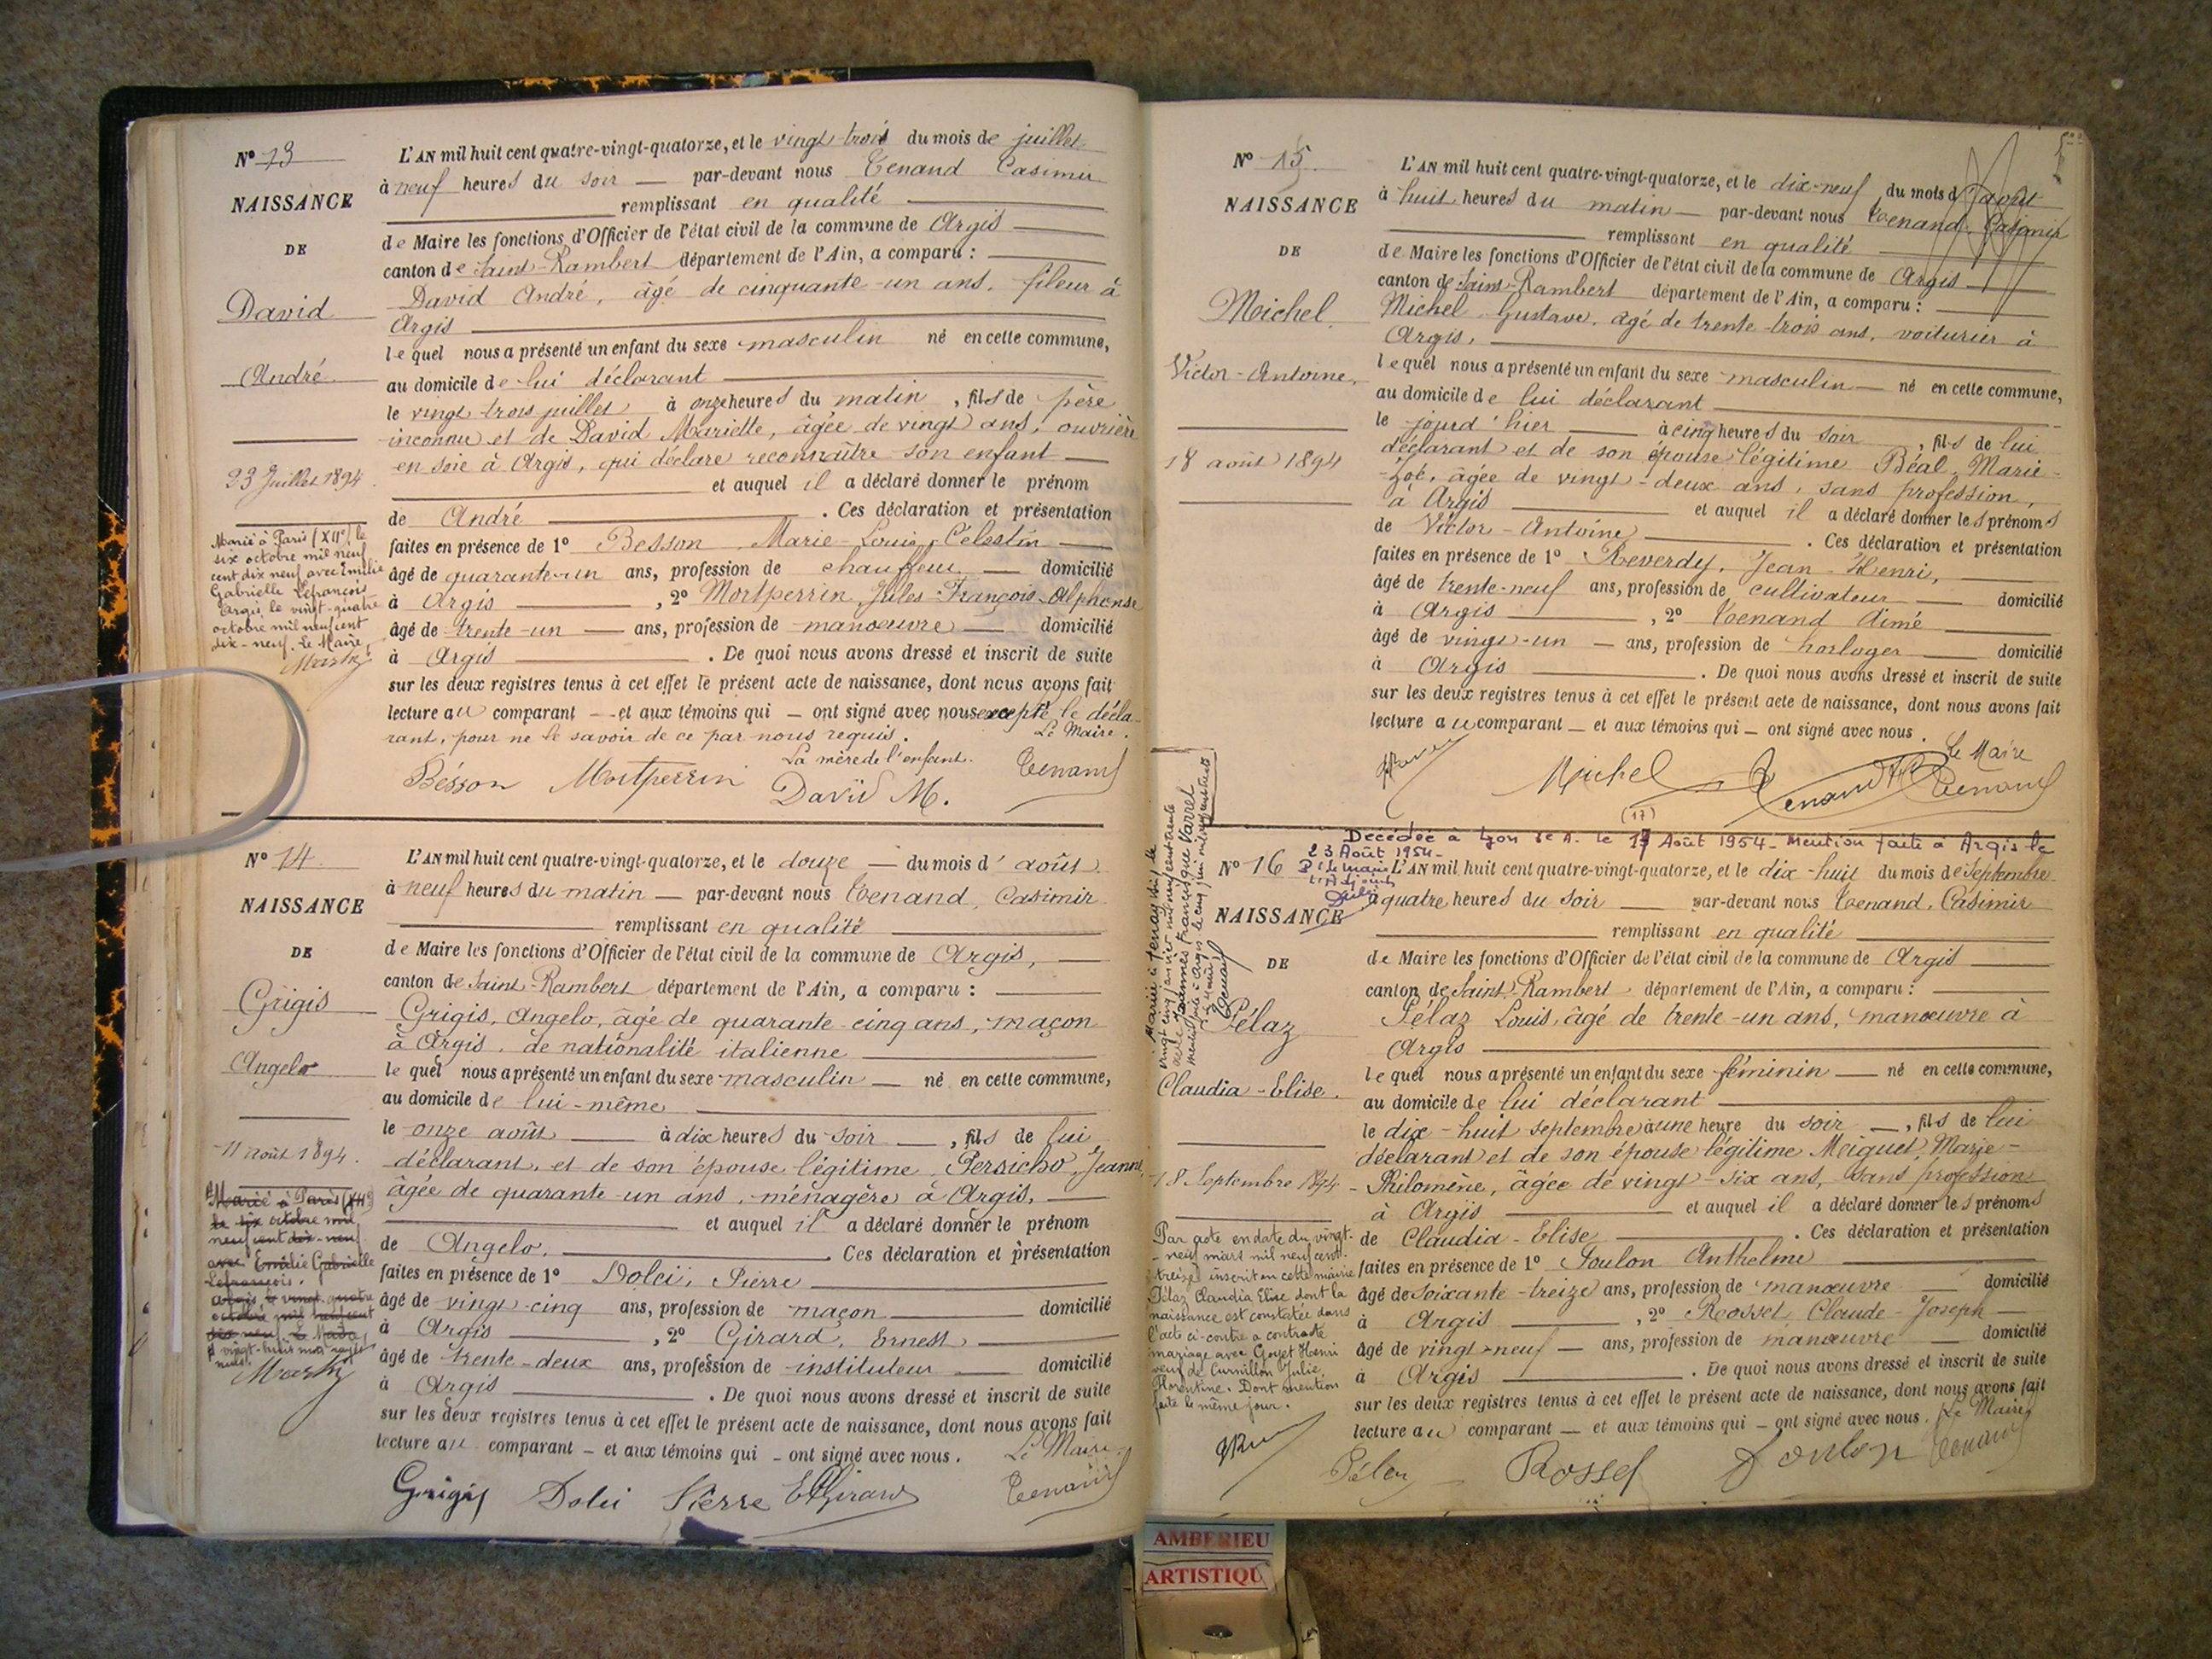 N° 13
NAISSANCE
DE
David
André
23 Juillet 1894
Marié à Paris (XIIe) le
six octobre mil neuf
cent dix neuf avec Emilie
Gabrielle Lefrançois
Argis, le vingt-quatre
octobre mil neuf cent
dix-neuf. Le Maire,
L'AN mil huit cent quatre-vingt-quatorze, et le vingt-trois du mois de juillet
à neuf heures du soir — par-devant nous Tenand Casimir
remplissant en qualité
de Maire les fonctions d'Officier de l'état civil de la commune de Argis
canton de Saint-Rambert département de l'Ain, a comparu :
David André, âgé de cinquante-un ans, fileur à
Argis
lequel nous a présenté un enfant du sexe masculin né en cette commune,
au domicile de lui déclarant
le vingt-trois juillet à onze heures du matin, fils de père
inconnu et de David Mariette, âgée de vingt ans, ouvrière
en soie à Argis, qui déclare reconnaître son enfant
et auquel il a déclaré donner le prénom
de André . Ces déclaration et présentation
faites en présence de 1° Besson Marie-Louis Célestin
âgé de quarante-un ans, profession de chauffeur domicilié
à Argis , 2° Mortperrin Jules-François-Alphonse
âgé de trente-un ans, profession de manœuvre domicilié
à Argis . De quoi nous avons dressé et inscrit de suite
sur les deux registres tenus à cet effet le présent acte de naissance, dont nous avons fait
lecture au comparant — et aux témoins qui — ont signé avec nous excepté le décla-
rant, pour ne le savoir de ce par nous requis. Le Maire.
La mère de l'enfant.
Bésson Mortperrin David M. Tenand
N° 14
NAISSANCE
DE
Grigis
Angelo
11 août 1894.
Marié à Paris (XIIe)
le six octobre mil
neuf cent dix-neuf
avec Emilie Gabrielle
Lefrançois.
Argis, le vingt-quatre
octobre mil neuf cent
dix neuf. Le Maire,
vingt-huit mots rayés
nuls.
L'AN mil huit cent quatre-vingt-quatorze, et le douze — du mois d'août
à neuf heures du matin — par-devant nous Tenand, Casimir
remplissant en qualité
de Maire les fonctions d'Officier de l'état civil de la commune de Argis,
canton de Saint-Rambert département de l'Ain, a comparu :
Grigis, Angelo, âgé de quarante-cinq ans, maçon
à Argis, de nationalité italienne
lequel nous a présenté un enfant du sexe masculin — né en cette commune,
au domicile de lui-même
le onze août à dix heures du soir —, fils de lui
déclarant, et de son épouse légitime Persicho, Jeanne
âgée de quarante-un ans, ménagère à Argis,
et auquel il a déclaré donner le prénom
de Angelo, . Ces déclaration et présentation
faites en présence de 1° Dolci, Pierre
âgé de vingt-cinq ans, profession de maçon domicilié
à Argis , 2° Girard, Ernest
âgé de trente-deux ans, profession de instituteur domicilié
à Argis . De quoi nous avons dressé et inscrit de suite
sur les deux registres tenus à cet effet le présent acte de naissance, dont nous avons fait
lecture au comparant — et aux témoins qui — ont signé avec nous. Le Maire.
Grigis Dolci Pierre E Girard Tenand
N° 15
NAISSANCE
DE
Michel
Victor-Antoine,
18 août 1894
L'AN mil huit cent quatre-vingt-quatorze, et le dix-neuf du mois d'août
à huit heures du matin — par-devant nous Tenand Casimir
remplissant en qualité
de Maire les fonctions d'Officier de l'état civil de la commune de Argis
canton de Saint-Rambert département de l'Ain, a comparu :
Michel Gustave, âgé de trente-trois ans, voiturier à
Argis,
lequel nous a présenté un enfant du sexe masculin — né en cette commune,
au domicile de lui déclarant
le jourd'hier à cinq heures du soir , fils de lui
déclarant et de son épouse légitime Béal, Marie-
Zoé, âgée de vingt-deux ans, sans profession,
à Argis et auquel il a déclaré donner les prénoms
de Victor-Antoine . Ces déclaration et présentation
faites en présence de 1° Reverdy, Jean-Henri,
âgé de trente-neuf ans, profession de cultivateur domicilié
à Argis , 2° Tenand Aimé
âgé de vingt-un — ans, profession de horloger domicilié
à Argis . De quoi nous avons dressé et inscrit de suite
sur les deux registres tenus à cet effet le présent acte de naissance, dont nous avons fait
lecture au comparant — et aux témoins qui — ont signé avec nous.
Le Maire
Michel Tenand Tenand
(17)
Décédée à Lyon 3e A. le 17 Août 1954 - Mention faite à Argis le
23 Août 1954 -
P. le Maire
L'Adjoint
N° 16
NAISSANCE
DE
Pélaz
Claudia-Elise.
18 Septembre 1894
Par acte en date du vingt-
-neuf mars mil neuf cent-
treize inscrit en cette mairie
Pélaz Claudia Elise dont la
naissance est constatée dans
l'acte ci-contre a contracté
mariage avec Goyet Henri
veuf de Curvillon Julie
Florentine. Dont mention
faite le même jour.
L'AN mil huit cent quatre-vingt-quatorze, et le dix-huit du mois de Septembre
à quatre heures du soir par-devant nous Tenand, Casimir
remplissant en qualité
de Maire les fonctions d'Officier de l'état civil de la commune de Argis
canton de Saint-Rambert département de l'Ain, a comparu :
Pélaz Louis, âgé de trente-un ans, manœuvre à
Argis
lequel nous a présenté un enfant du sexe féminin — né en cette commune,
au domicile de lui déclarant
le dix-huit septembre à une heure du soir —, fils de lui
déclarant et de son épouse légitime Moiguet, Marie-
-Philomène, âgée de vingt-six ans, sans profession
à Argis et auquel il a déclaré donner les prénoms
de Claudia-Elise . Ces déclaration et présentation
faites en présence de 1° Soulon Anthelme
âgé de soixante-treize ans, profession de manœuvre domicilié
à Argis , 2° Rosset, Claude-Joseph
âgé de vingt-neuf — ans, profession de manœuvre domicilié
à Argis . De quoi nous avons dressé et inscrit de suite
sur les deux registres tenus à cet effet le présent acte de naissance, dont nous avons fait
lecture au comparant — et aux témoins qui — ont signé avec nous. Le Maire
Pélaz Rosset Soulon Tenand
AMBERIEU
ARTISTIQU